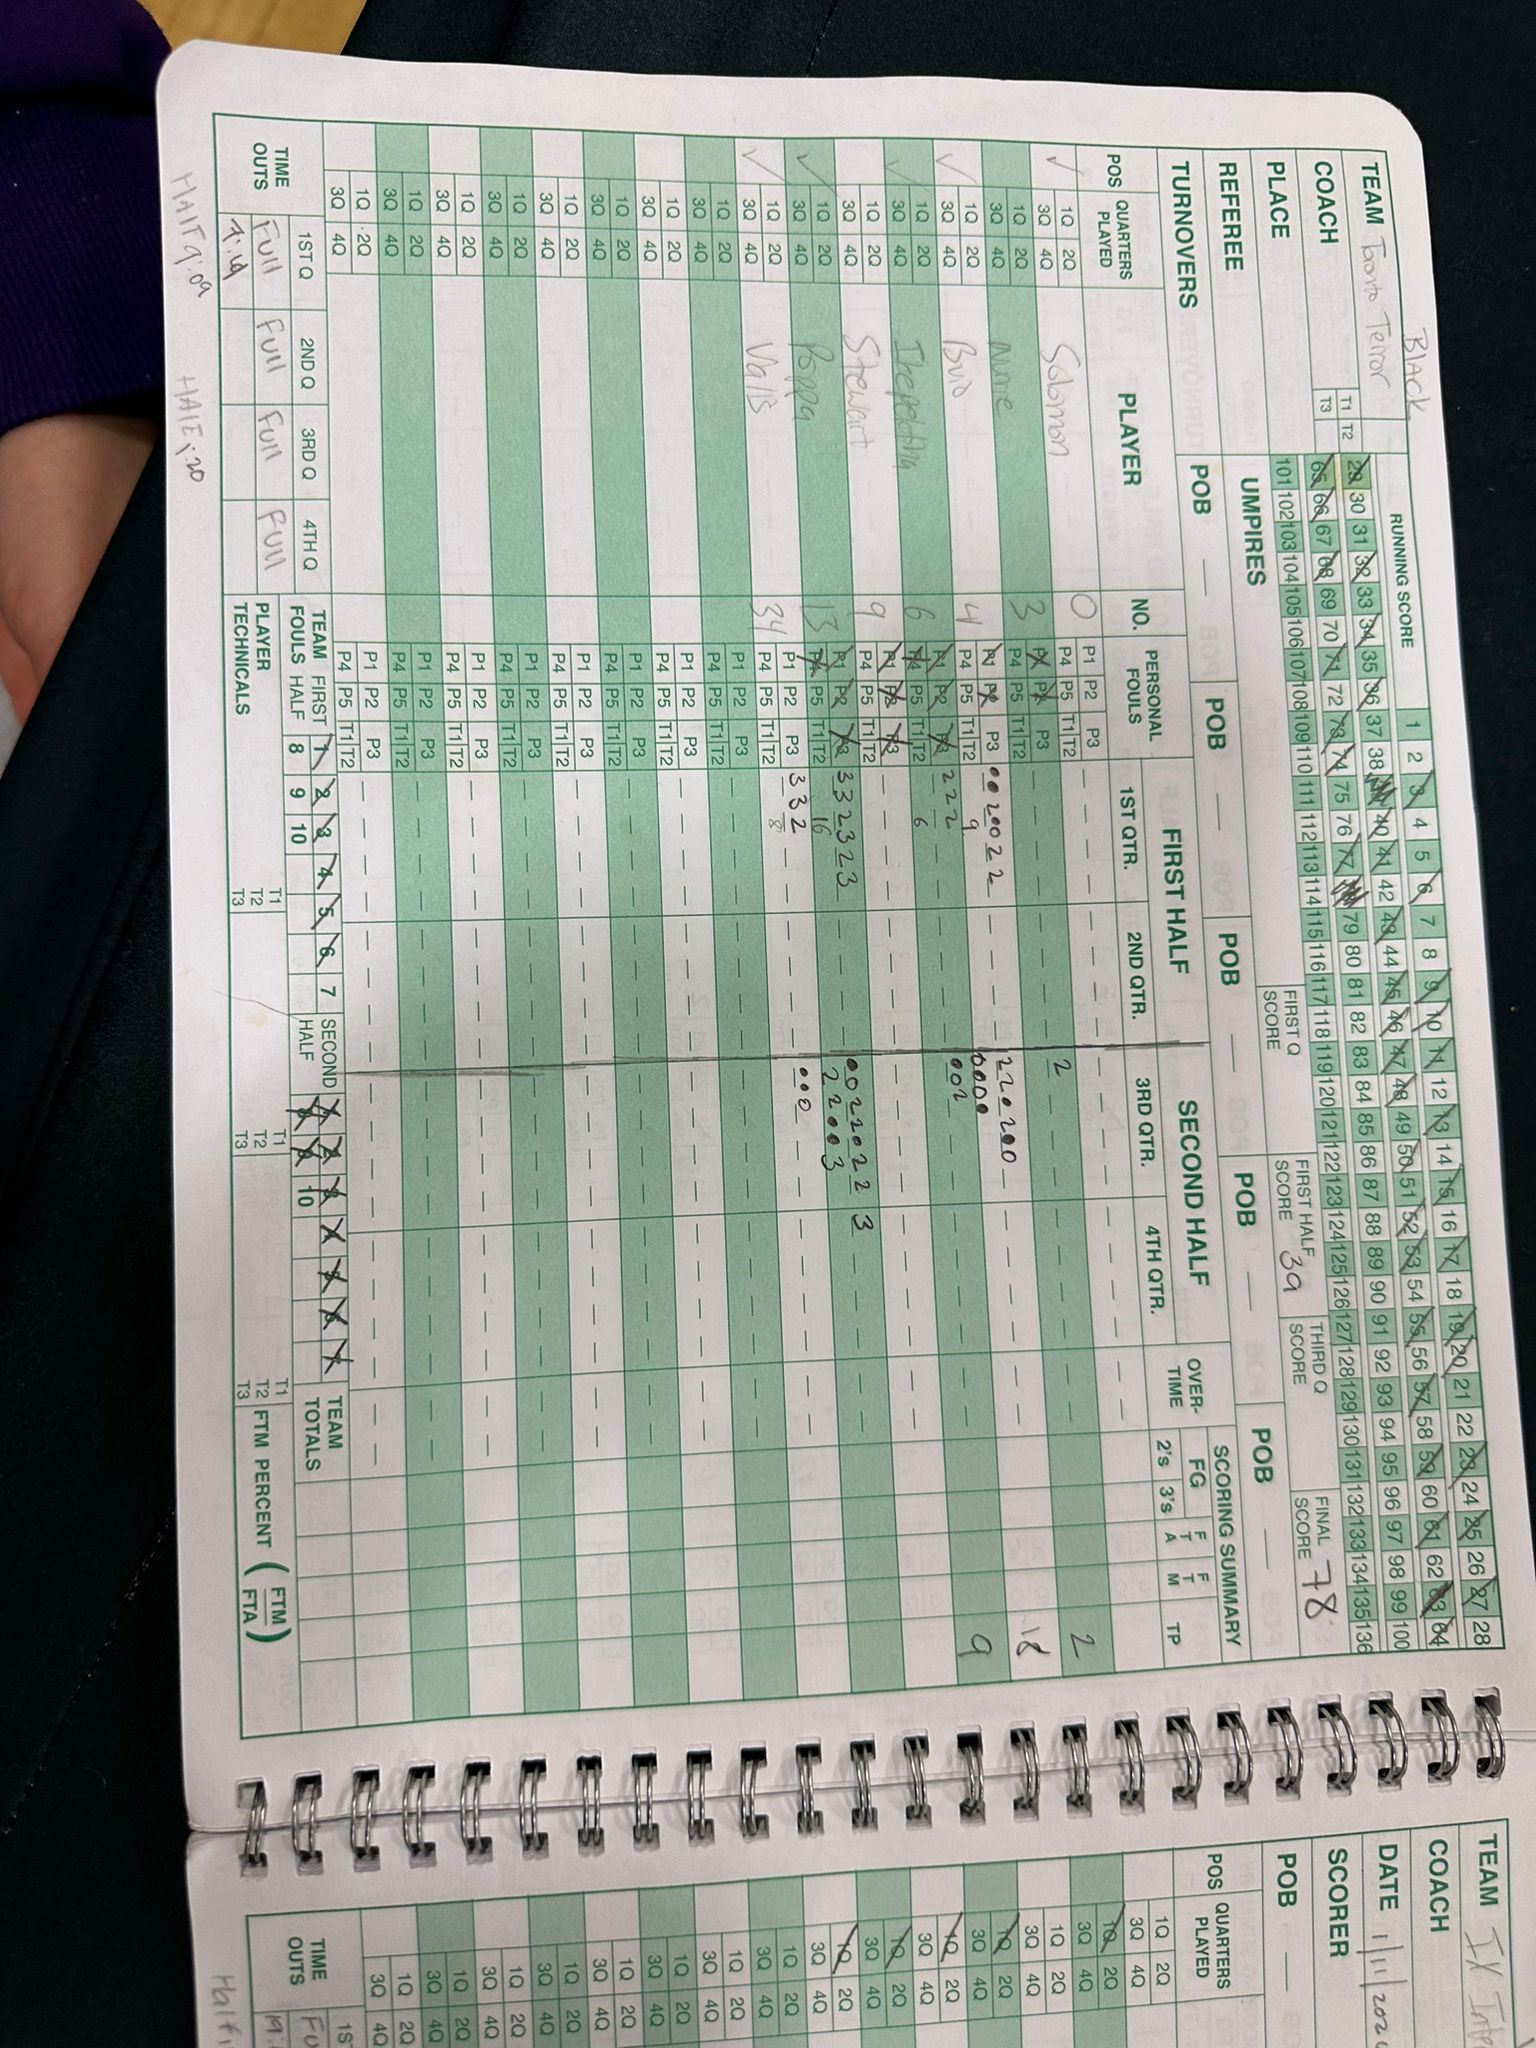 BLACK
TEAM Toronto Terror
RUNNING SCORE
1 2 3 4 5 6 7 8 9 10 11 12 13 14 15 16 17 18 19 20 21 22 23 24 25 26 27 28
T1 T2 29 30 31 32 33 34 35 36 37 38 40 41 42 43 44 45 46 47 48 49 50 51 52 53 54 55 56 57 58 59 60 61 62 63 64
COACH
T3 65 66 67 68 69 70 71 72 73 74 75 76 77 79 80 81 82 83 84 85 86 87 88 89 90 91 92 93 94 95 96 97 98 99 100
101 102 103 104 105 106 107 108 109 110 111 112 113 114 115 116 117 118 119 120 121 122 123 124 125 126 127 128 129 130 131 132 133 134 135 136
PLACE
UMPIRES
FIRST Q SCORE
FIRST HALF SCORE 39
THIRD Q SCORE
FINAL SCORE 78
REFEREE
POB POB POB POB POB
TURNOVERS
POB
POS QUARTERS PLAYED PLAYER NO. PERSONAL FOULS FIRST HALF SECOND HALF OVER-TIME SCORING SUMMARY
1ST QTR. 2ND QTR. 3RD QTR. 4TH QTR. FG 2's 3's FTA FTM TP
✓ 1Q 2Q 3Q 4Q Solomon 0 P1 P2 P3 P4 P5 T1 T2 2 2
1Q 2Q 3Q 4Q 3 P1 P2 P3 P4 P5 T1 T2 18
✓ 1Q 2Q 3Q 4Q 4 P1 P2 P3 P4 P5 T1 T2 9 9
✓ 1Q 2Q 3Q 4Q 6 P1 P2 P3 P4 P5 T1 T2 2 2 2 6
1Q 2Q 3Q 4Q Stewart 9 P1 P2 P3 P4 P5 T1 T2
✓ 1Q 2Q 3Q 4Q Poppa 13 P1 P2 P3 P4 P5 T1 T2 3 3 2 3 2 3 16
✓ 1Q 2Q 3Q 4Q Valls 34 P1 P2 P3 P4 P5 T1 T2 3 3 2 8
1Q 2Q 3Q 4Q P1 P2 P3 P4 P5 T1 T2
1Q 2Q 3Q 4Q P1 P2 P3 P4 P5 T1 T2
1Q 2Q 3Q 4Q P1 P2 P3 P4 P5 T1 T2
1Q 2Q 3Q 4Q P1 P2 P3 P4 P5 T1 T2
1Q 2Q 3Q 4Q P1 P2 P3 P4 P5 T1 T2
1Q 2Q 3Q 4Q P1 P2 P3 P4 P5 T1 T2
1Q 2Q 3Q 4Q P1 P2 P3 P4 P5 T1 T2
1Q 2Q 3Q 4Q P1 P2 P3 P4 P5 T1 T2
TIME OUTS 1ST Q 2ND Q 3RD Q 4TH Q TEAM FOULS FIRST HALF 1 2 3 4 5 6 7 8 9 10 SECOND HALF 10 TEAM TOTALS
Full Full Full Full PLAYER TECHNICALS T1 T2 T3 T1 T2 T3 T1 T2 T3 FTM PERCENT (FTM/FTA)
HAlF 9:09
TEAM IX
COACH
DATE 1/11/202
SCORER
POB
POS QUARTERS PLAYED
1Q 2Q
3Q 4Q
1Q 2Q
3Q 4Q
1Q 2Q
3Q 4Q
1Q 2Q
3Q 4Q
1Q 2Q
3Q 4Q
1Q 2Q
3Q 4Q
1Q 2Q
3Q 4Q
1Q 2Q
3Q 4Q
1Q 2Q
3Q 4Q
1Q 2Q
3Q 4Q
1Q 2Q
3Q 4Q
1Q 2Q
3Q 4Q
1Q 2Q
3Q 4Q
1Q 2Q
3Q 4Q
1Q 2Q
3Q 4Q
TIME OUTS